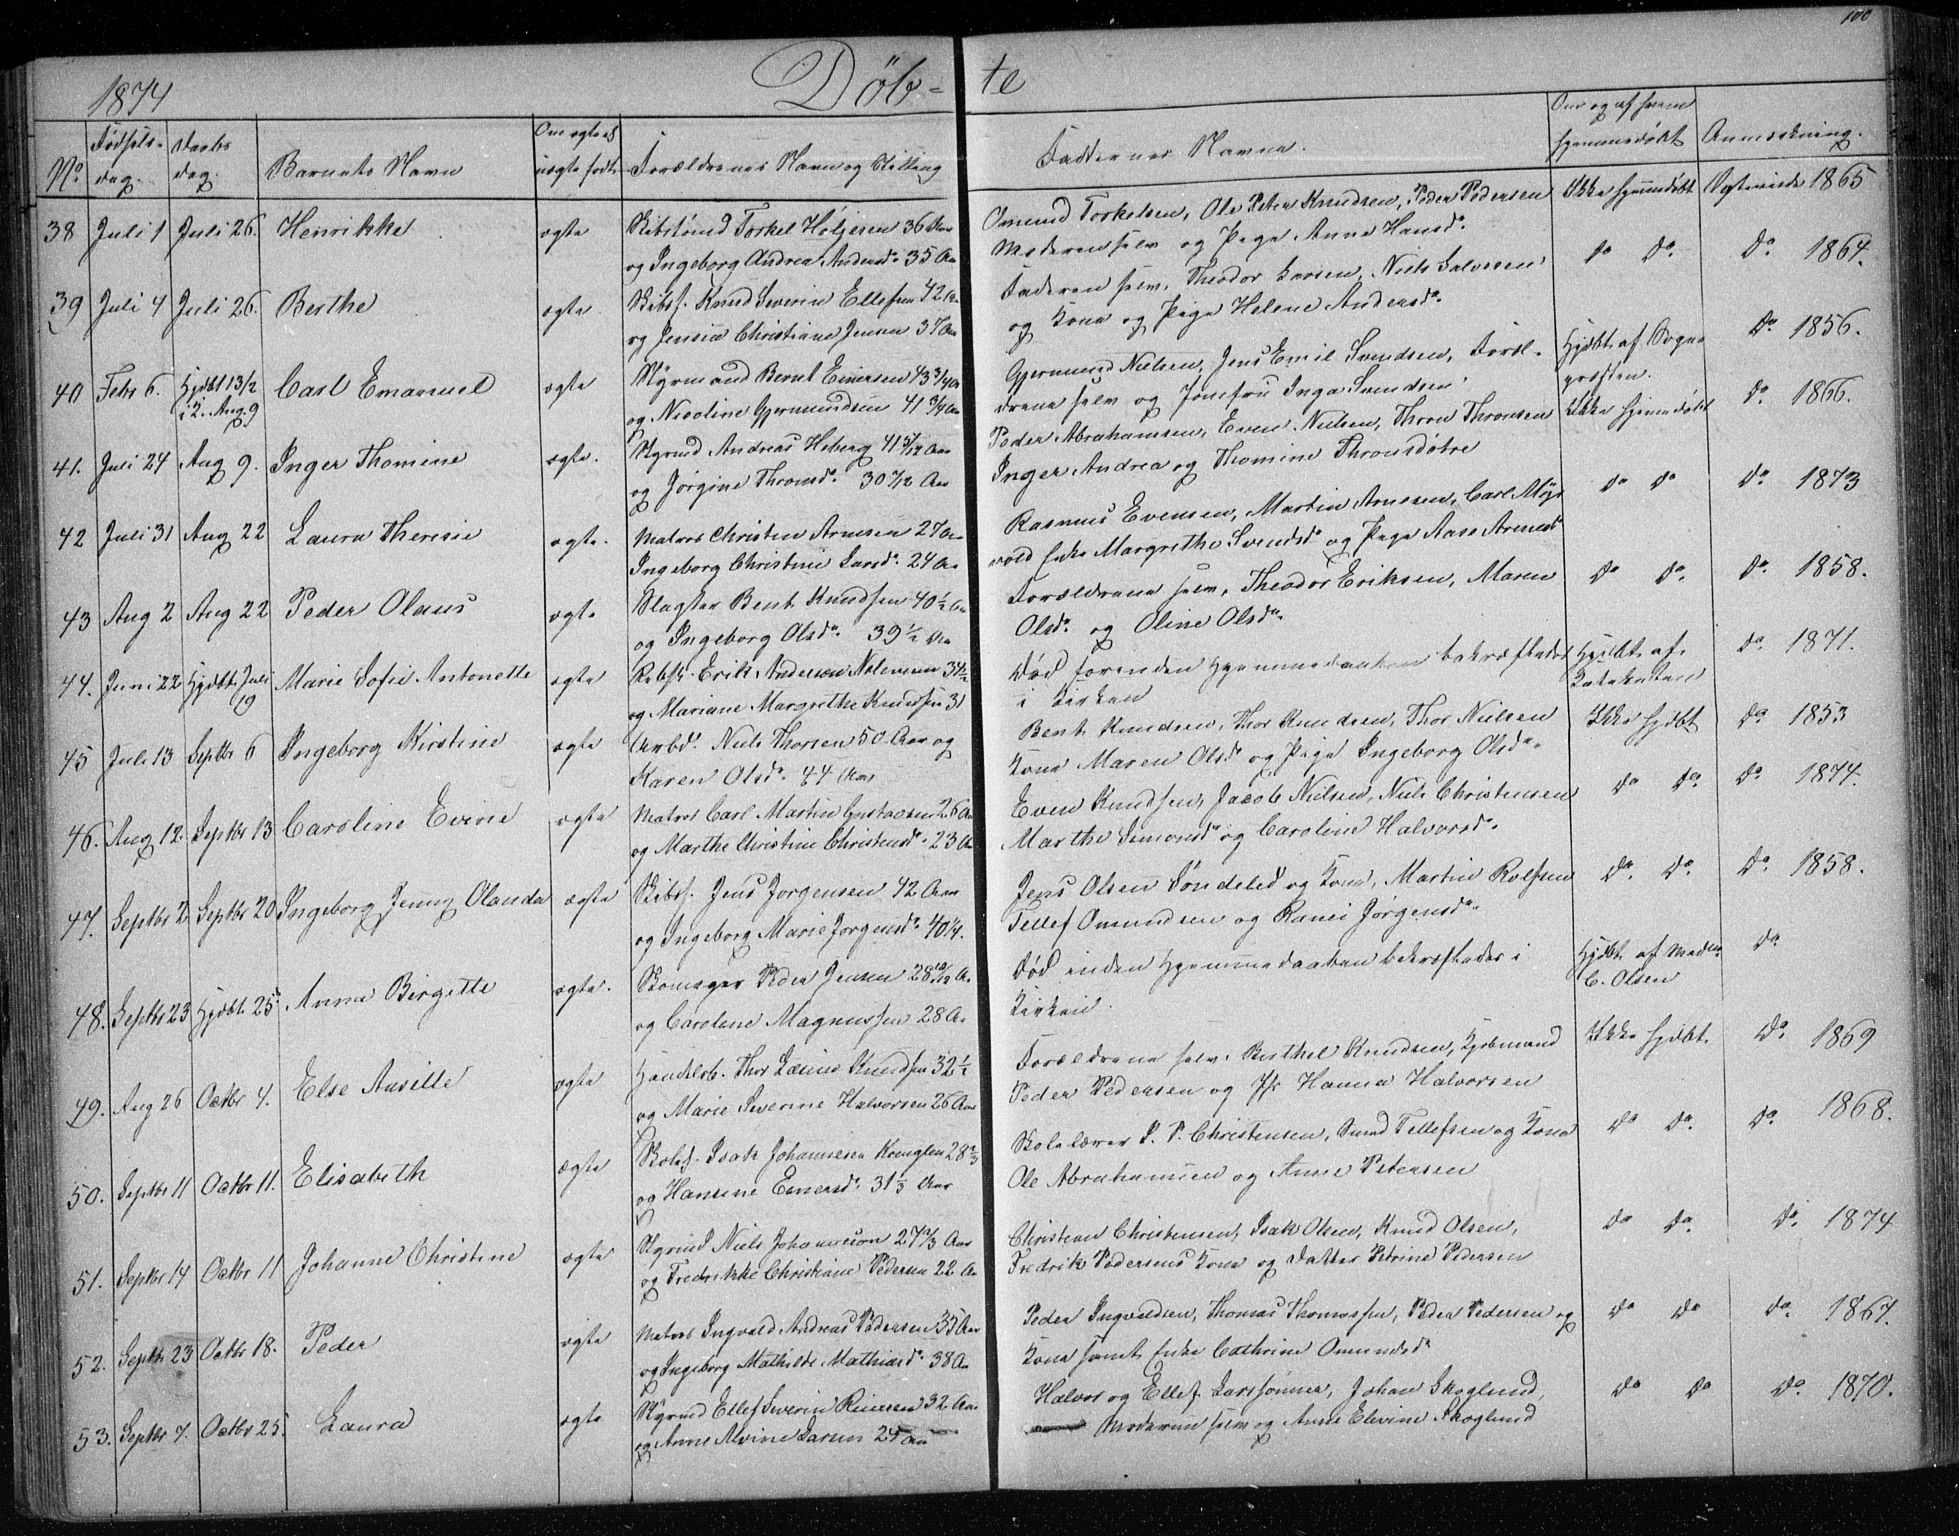 100
1874 Døb- te
No Fødsels-dag. Daabsdag. Barnets Navn Om ægte el uægte født Forældrenes Navn og Stilling Faddernes Navne. Om og af hvem hjemmedøbt Anmærkning.
38 Juli 1 Juli 26. Henrikke ægte Torkel 36 Aar Omund Torkelsen, Ole Peter Knudsen, Peder Pedersen Ikke hjemmedøbt Ægteviede 1865
og Ingeborg Andrea Andersdr 35 Aar Moderen selv og Pige Anne Hansdr
39 Juli 4 Juli 26. Berthe ægte Skibsf. Knud Severin Ellefsen 42 Aar Faderen selv, Theodor Larsen, Niels Halvorsen, Do Do. Do. 1864.
og Jensine Christiane Jensen 37 Aar og Kone og Pige Helene Andersdr
40 Febr 6. Hjdbt 13/2 i K. Aug 9 Carl Emanuel ægte Styrmand Bernt Einersen 43 3/4 Aar Gjermund Nielsen, Jens Emil Svendsen, Foræl- Hjdbt. af Sogne- Do 1856.
og Nicoline Gjermundsen 41 3/4 Aar drene selv og Jomfru Inga Svendsen. præsten.
41. Juli 24 Aug 9. Inger Thomine ægte. Styrmd Andreas Heberg 41 5/12 Aar Peder Abrahamsen, Even Nielsen, Thron Thronsen Ikke hjemmedøbt Do. 1866.
og Jørgine Thronsdr. 30 7/12 Aar Inger Andrea og Thomine Thronsdøtre
42 Juli 31 Aug 22 Laura Theresie ægte. Matros Christen Arnesen 27 Aar Rasmus Evensen, Martin Arnesen, Carl Do Do Do. 1873
Ingeborg Christine Larsdr. 24 Aar Enke Margrethe Svendsdr og Pige Aase Arnesdr
43 Aug 2 Aug 22 Peder Olaus ægte Slagter Bent Knudsen 40 1/2 Aar Forældrene selv, Theodor Eriksen, Maren Do Do. Do. 1858.
og Ingeborg Olsdr. 39 1/2 Aar Olsdr. og Oline Olsdr.
44. Juni 22 Hjdbt. Juli 19 Marie Sofie Antonette ægte Rebsl. Erik Andersen 34 1/2 Død forinden Hjemmedaaben bekræftedes Hjdbt. af Do. 1871.
og Mariane Margrethe Knudsen 31 i Kirken Kateketen
45 Juli 13 Septbr 6 Ingeborg Kirstine ægte Arbd. Niels Thorsen 50 Aar og Bent Knudsen, Thor Knudsen, Thor Nielsen Ikke hjdbt Do 1853
Karen Olsdr. 44 Aar Kone Maren Olsdr og Pige Ingeborg Olsdr.
46. Aug 12. Septbr 13 Caroline Evine ægte Matros Carl Martin Gustavsen 26 Aar Even Knudsen, Jacob Nielsen, Niels Christensen Do Do. Do 1874.
og Marthe Christine Christensdr. 23 Aar Marthe Simonsdr og Caroline Halvorsdr.
47. Septbr 2 Septbr 20 Ingeborg Jenny Olanda ægte Skibsf. Jens Jørgensen 42 Aar Jens Olsen Søndeled og Kone, Martin Rolfsen Do. Do. Do. 1858.
og Ingeborg Marie Jørgensdr. 40 1/4. Tellef Omundsen og Jørgensdr.
48. Septbr 23 Hjdbt. 25. Anna Birgitte ægte. Skomager Peder Jensen 28 10/12 Aar Død inden Hjemmedaaben bekræftedes i Hjdbt. af Mad. Do.
og Caroline Magnussen 28 Aar Kirken. C. Olsen
49. Aug 26 Octbr 4. Else ægte Handelsb. Thor Knudsen 32 1/2 Forældrene selv. Berthel Knudsen, Kjøbmand Ikke hjdbt. Do. 1869
og Marie Severine Halvorsen 26 Aar Peder Pedersen og Jfr Hanna Halvorsen
50. Septbr 11 Octbr 11. Elisabeth ægte Isak Johannesen 28 2/3 Skolelærer P. P. Christensen, Tellefsen og Kone Do Do. Do. 1868.
og Hansine Einersdr. 31 1/3 Aar Ole Abrahamsen og Anne Petersen
51. Septbr 14 Octbr 11 Johanne Christine ægte Styrmd Niels Johannesen Aar Christian Christensen, Isak Olsen, Knud Olsen, Do Do. Do. 1874
og Fredrikke Christiane Pedersen 22 Aar Fredrik Pedersens Kone og Datter Petrine Pedersen
52. Septbr 23 Octbr 18. Peder ægte Matros Ingvald Andreas Pedersen 35 Aar Peder Ingvaldsen, Thomas Thomassen, Peder Pedersen og Do Do Do. 1867.
og Ingeborg Mathilde Mathiasdr. 38 Aar Kone samt Enke Cathrine Omundsdr
53. Septbr 7. Octbr 25. Laura ægte Styrmd Ellef Severin 32 Aar Halvor og Ellef Larssønner, Johan Skoglund, Do Do Do. 1870.
og Anne Alvine Larsen 25 Aar Moderen selv og Anne Elevine Skoglund